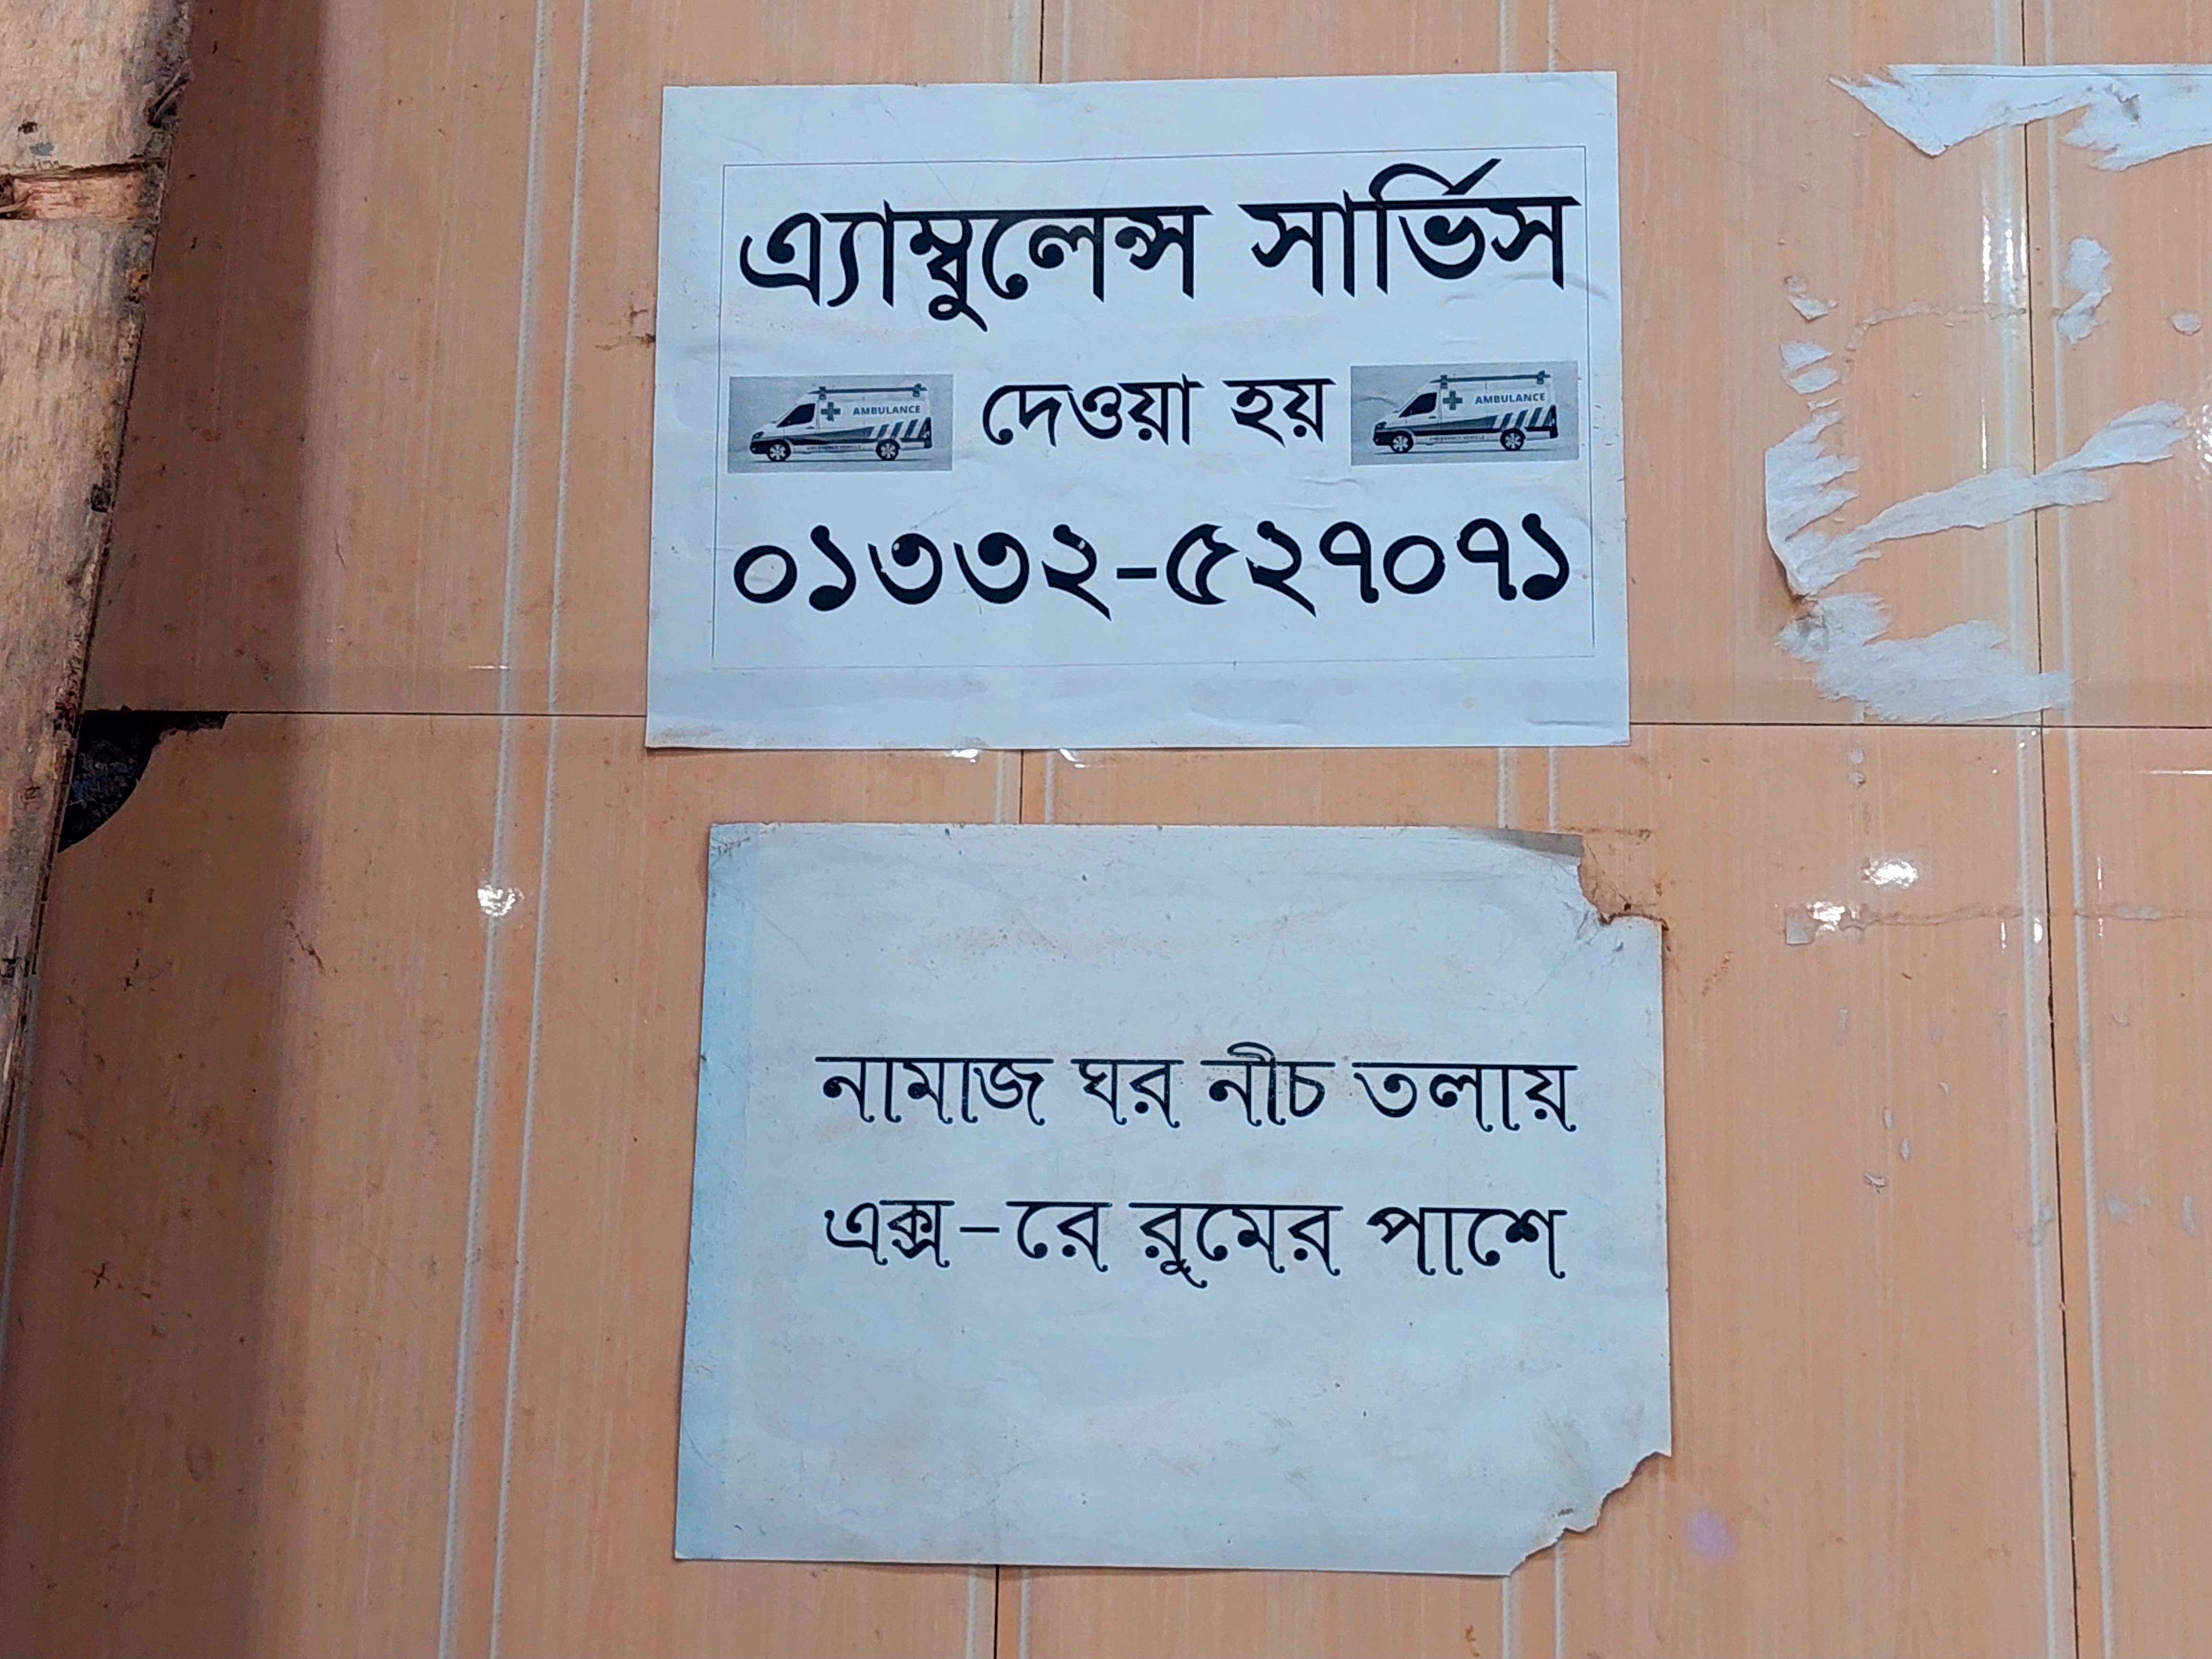 এ্যাম্বুলেন্স সার্ভিস
AMBULANCE দেওয়া হয় AMBULANCE
০১৩৩২-৫২৭০৭১
নামাজ ঘর নীচ তলায়
এক্স-রে রুমের পাশে